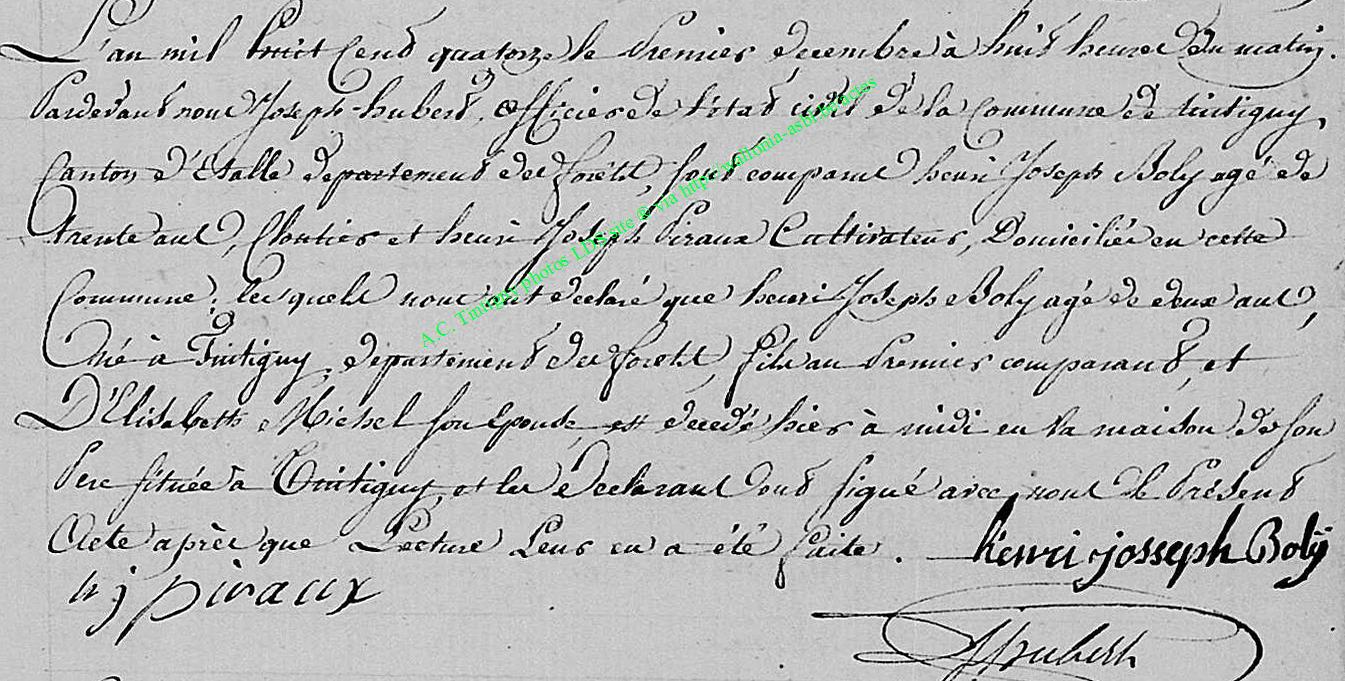 L'an mil huit Cent quatorze le Premier decembre à huit heures du matin.
Pardevant nous Joseph hubert, officier de l'état civil de la Commune de tintigny
Canton d'Etalle departement des forêts, sont comparus henri Joseph Boly agé de
trente ans, Cloutier et henri Joseph Piraux Cultivateur, Domiciliés en cette
Commune; lesquels nous ont declaré que henri Joseph Boly agé de deux ans,
Né à Tintigny, departement des forets, fils au Premier comparant, et
D'Elisabeth Michel son Epouse, est decedé hier à midi en la maison de son
Pere située à Tintigny, et les Declarants ont signé avec nous le Présent
Acte après que Lecture Leur en a été faite. henri josseph Boly
h j piraux
JHubert
A.C. Tintigny photos LDS site @ via http://wallonia-asbl.be/actes